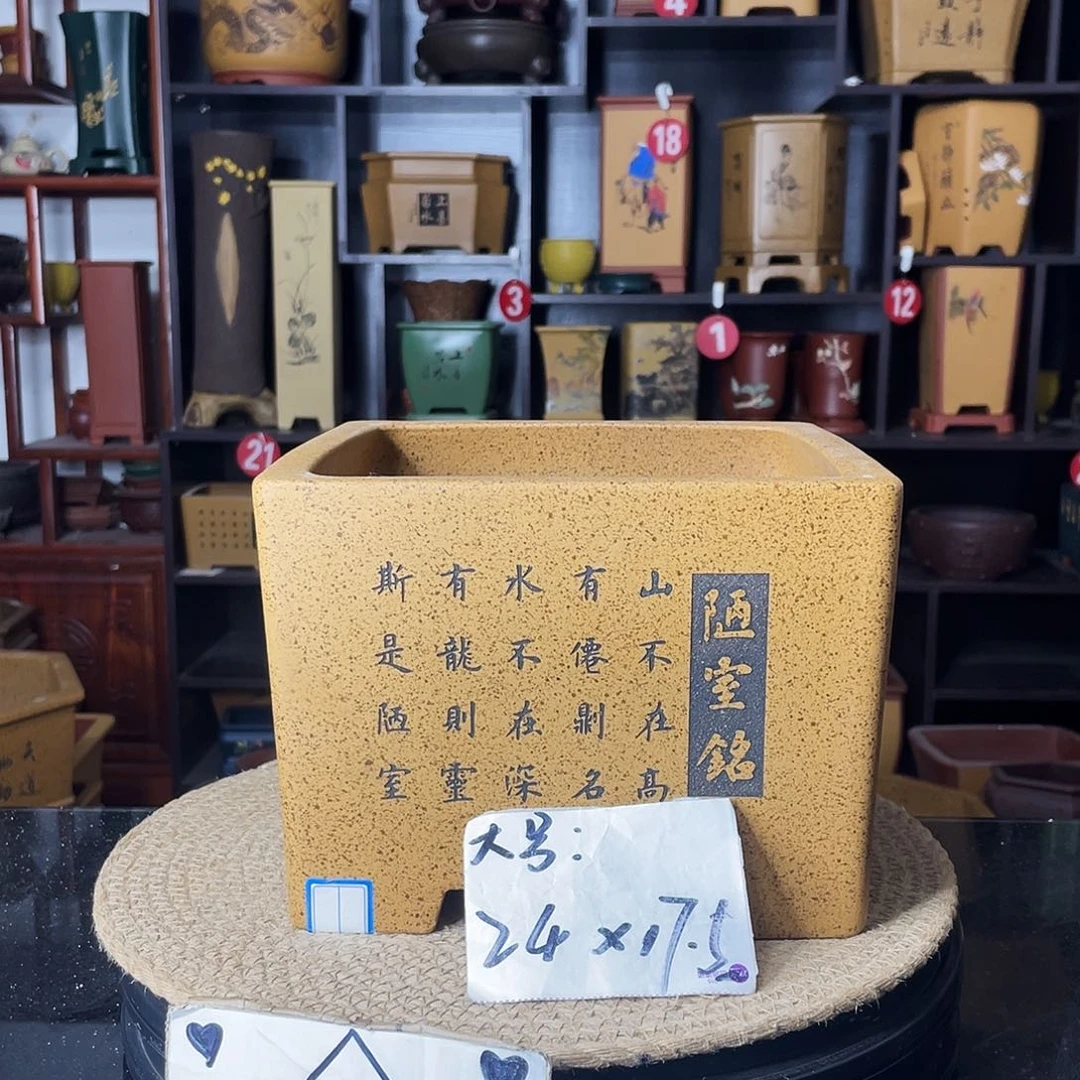 4
18
3
1
12
21
陋室銘
山不在高
有僊則名
水不在深
有龍則靈
斯是陋室
大号:
24×17.5